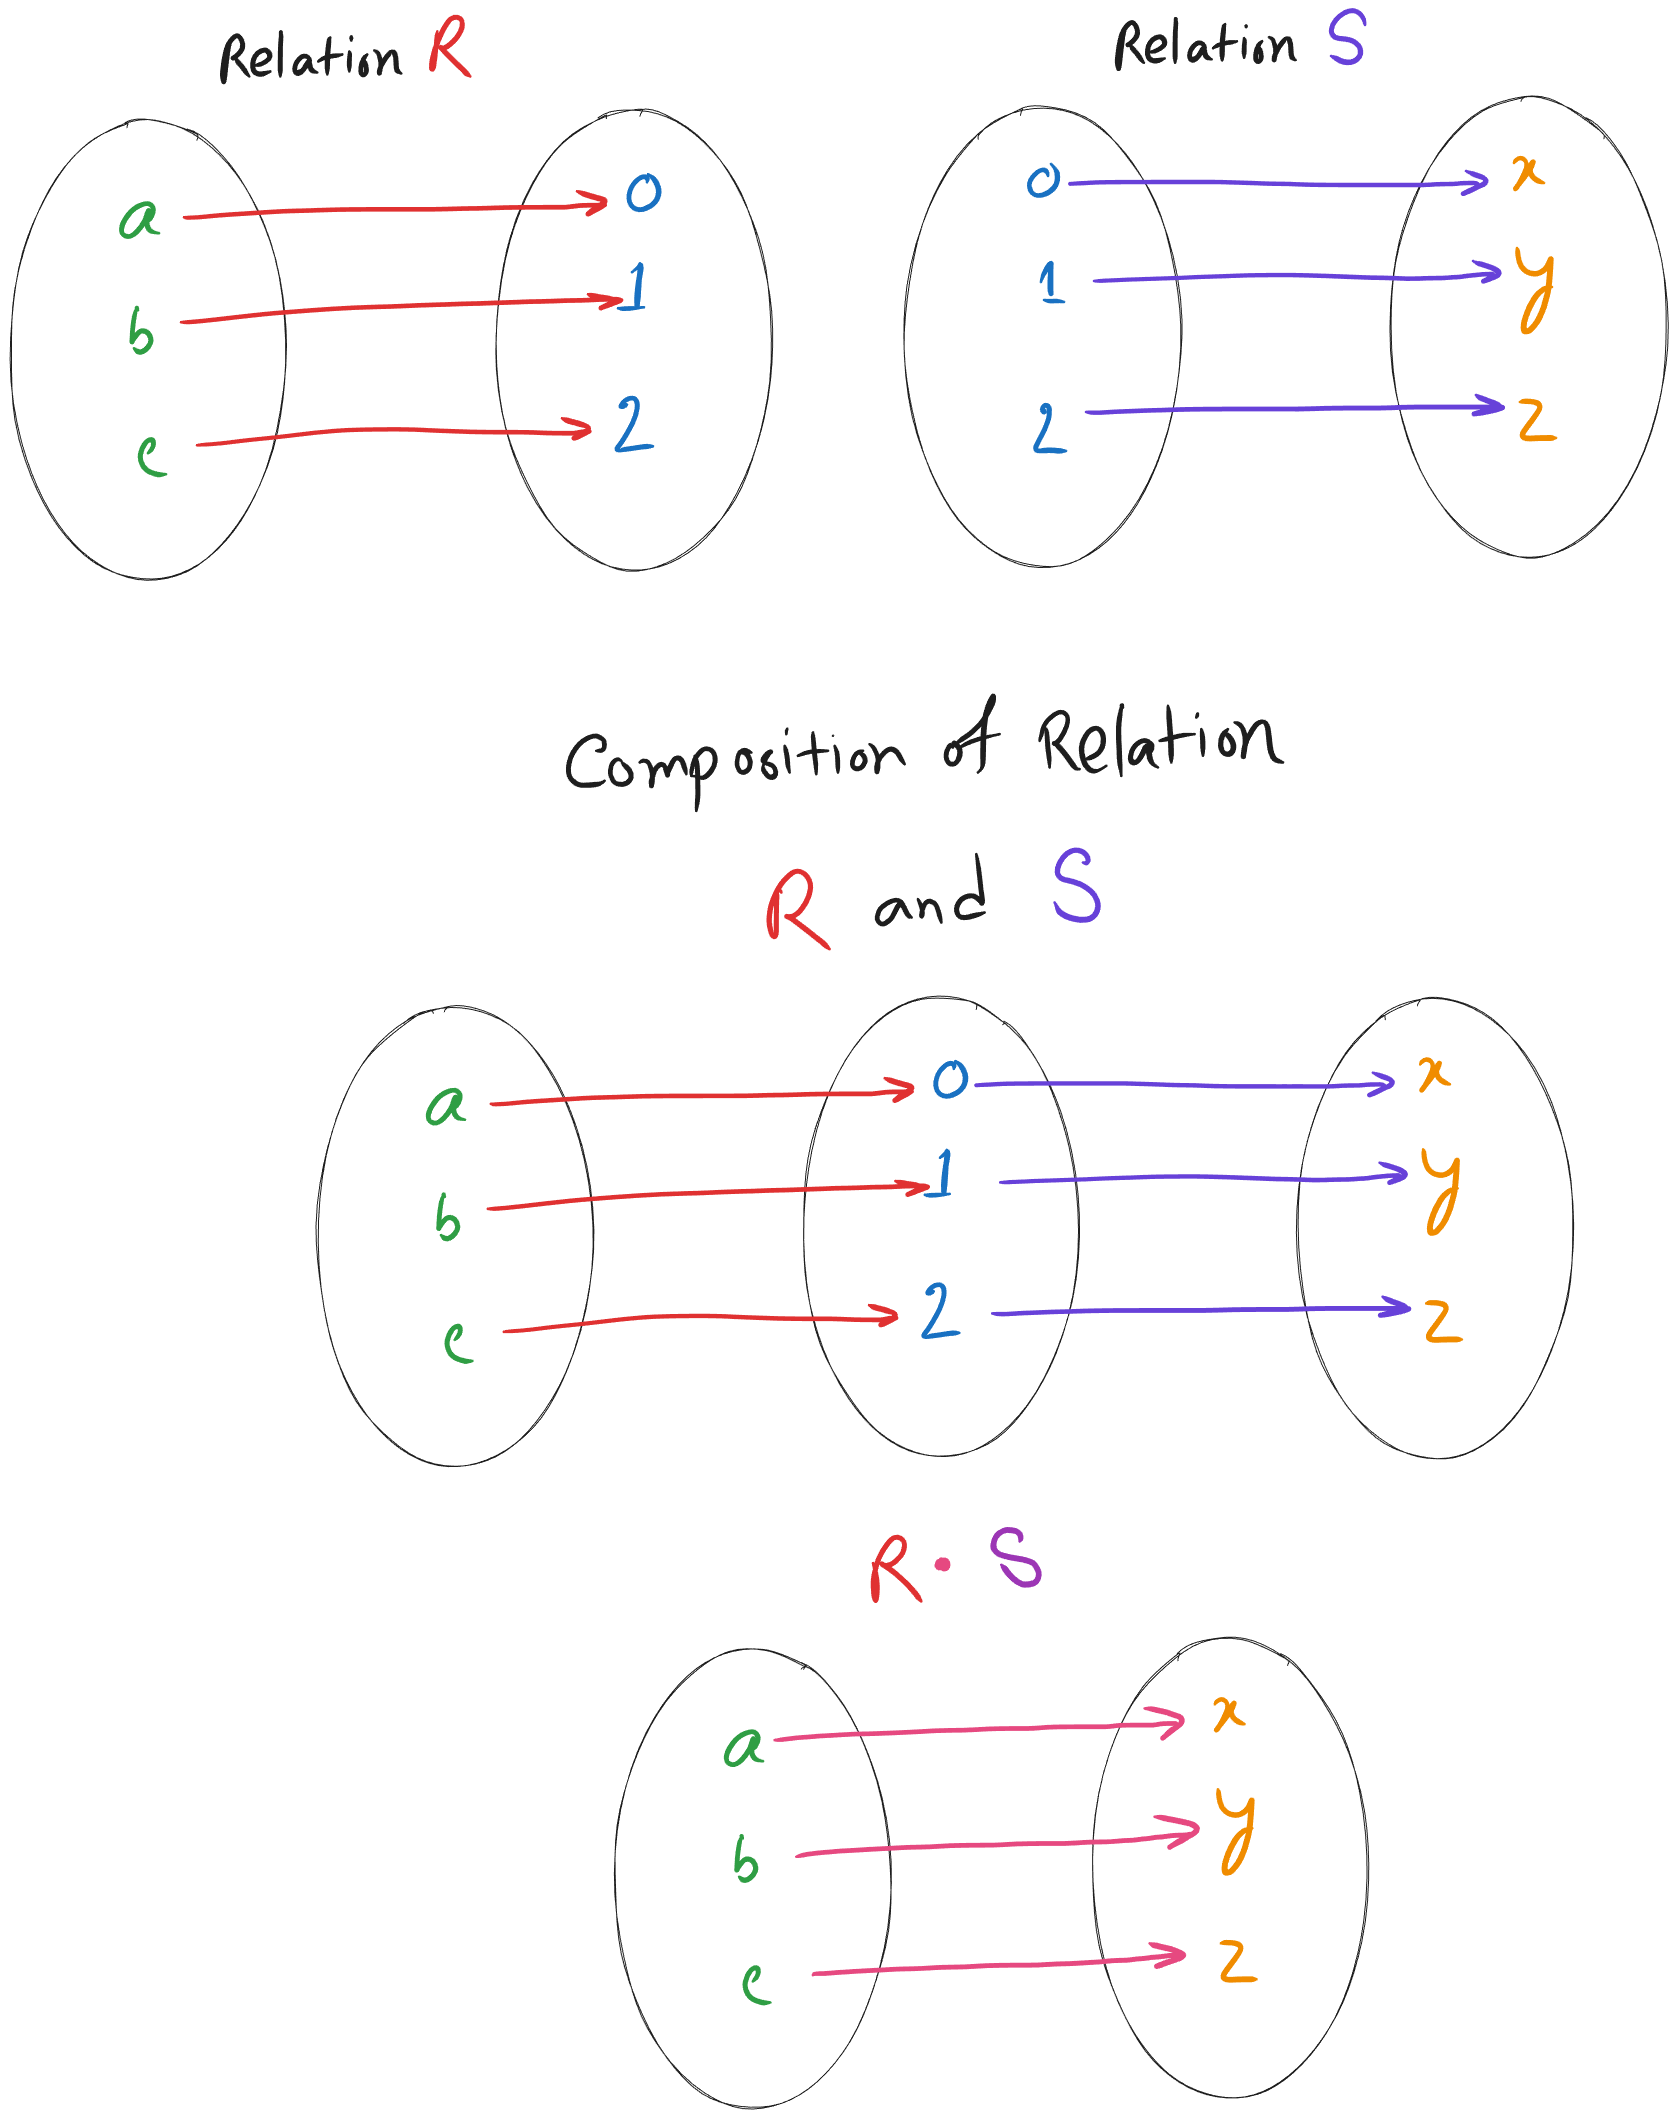 Relation R
Relation S
a
b
c
0
1
2
0
1
2
x
y
z
Composition of Relation
R and S
a
b
c
0
1
2
x
y
z
R · S
a
b
c
x
y
z